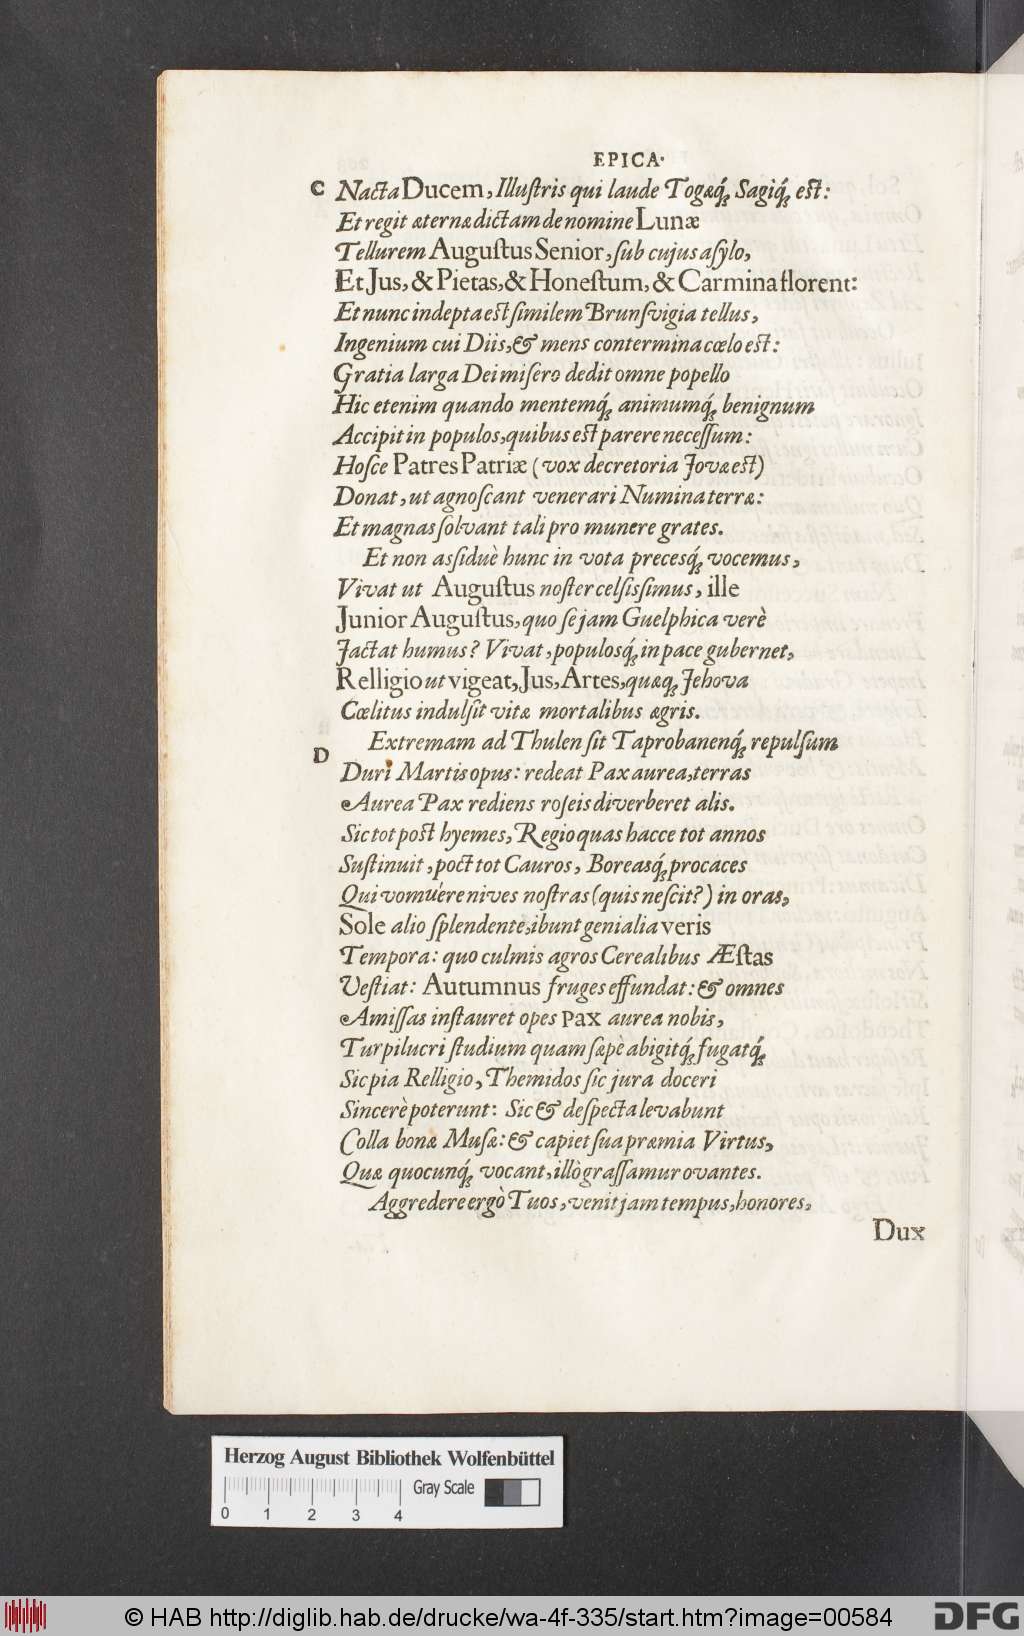 EPICA.
C Nacta Ducem, Illuſtris qui laude Togæq́; Sagiq́; eſt:
Et regit æternæ dictam de nomine Lunæ
Tellurem Auguſtus Senior, ſub cujus aſylo,
Et Jus, & Pietas, & Honeſtum, & Carmina florent:
Et nunc indepta eſt ſimilem Brunſvigia tellus,
Ingenium cui Diis, & mens contermina cœlo eſt:
Gratia larga Dei miſero dedit omne popello
Hic etenim quando mentemq́; animumq́; benignum
Accipit in populos, quibus eſt parere neceſſum:
Hoſce Patres Patriæ (vox decretoria Jovæ eſt)
Donat, ut agnoſcant venerari Numina terræ:
Et magnas ſolvant tali pro munere grates.
Et non aſſiduè hunc in vota precesq́; vocemus,
Vivat ut Auguſtus noſter celſiſſimus, ille
Junior Auguſtus, quo ſe jam Guelphica verè
Jactat humus? Vivat, populosq́; in pace gubernet,
Relligio ut vigeat, Jus, Artes, quæq; Jehova
Cœlitus indulſit vitæ mortalibus ægris.
Extremam ad Thulen ſit Taprobanenq́; repulſum
D Duri Martis opus: redeat Pax aurea, terras
Aurea Pax rediens roſeis diverberet alis.
Sic tot poſt hyemes, Regio quas hacce tot annos
Suſtinuit, poct tot Cauros, Boreasq́; procaces
Qui vomuêre nives noſtras (quis neſcit?) in oras,
Sole alio ſplendente, ibunt genialia veris
Tempora: quo culmis agros Cerealibus Æſtas
Veſtiat: Autumnus fruges effundat: & omnes
Amiſſas inſtauret opes Pax aurea nobis,
Turpi lucri ſtudium quam ſæpè abigitq́; fugatq́;
Sic pia Relligio, Themidos ſic jura doceri
Sincerè poterunt: Sic & deſpecta levabunt
Colla bonæ Muſæ: & capiet ſua præmia Virtus,
Quæ quocunq́; vocant, illò graſſamur ovantes.
Aggredere ergò Tuos, venit jam tempus, honores,
Dux
Herzog August Bibliothek Wolfenbüttel
Gray Scale
0 1 2 3 4
© HAB http://diglib.hab.de/drucke/wa-4f-335/start.htm?image=00584
DFG